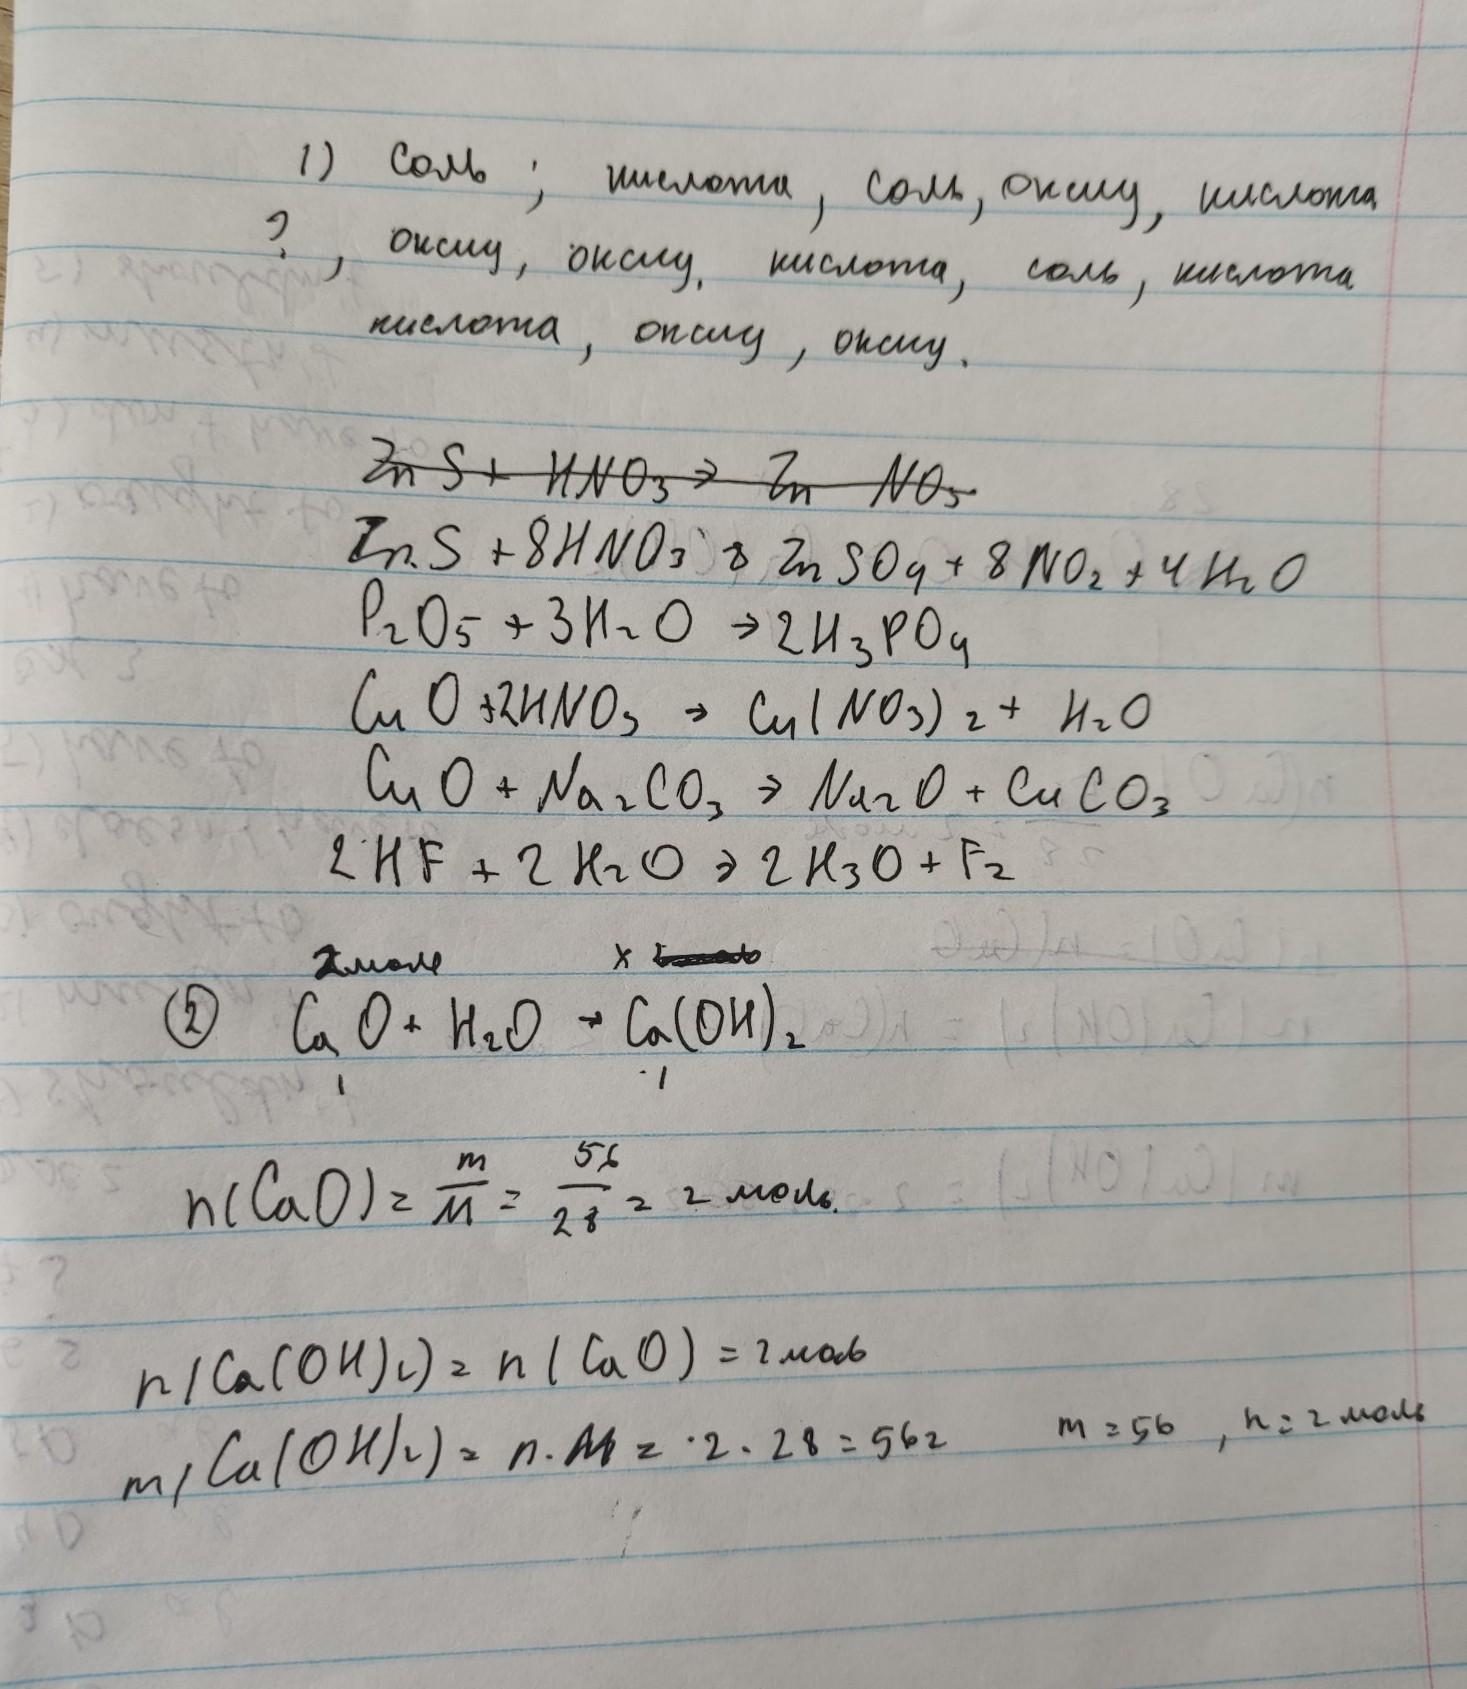 1) Соль ; кислота, соль, оксид, кислота
?, оксид, оксид, кислота, соль, кислота
кислота, оксид, оксид.
ZnS + HNO₃ → Zn NO₃
ZnS + 8HNO₃ → ZnSO₄ + 8NO₂ + 4H₂O
P₂O₅ + 3H₂O → 2H₃PO₄
CuO + 2HNO₃ → Cu(NO₃)₂ + H₂O
CuO + Na₂CO₃ → Na₂O + CuCO₃
2HF + 2H₂O → 2H₃O + F₂
2моле x
② CaO + H₂O → Ca(OH)₂
1 1
n(CaO) = m/M = 56/28 = 2 моль.
n(Ca(OH)₂) = n(CaO) = 2 моль
m(Ca(OH)₂) = n·M = 2·28 = 56г m = 56, n = 2 моль